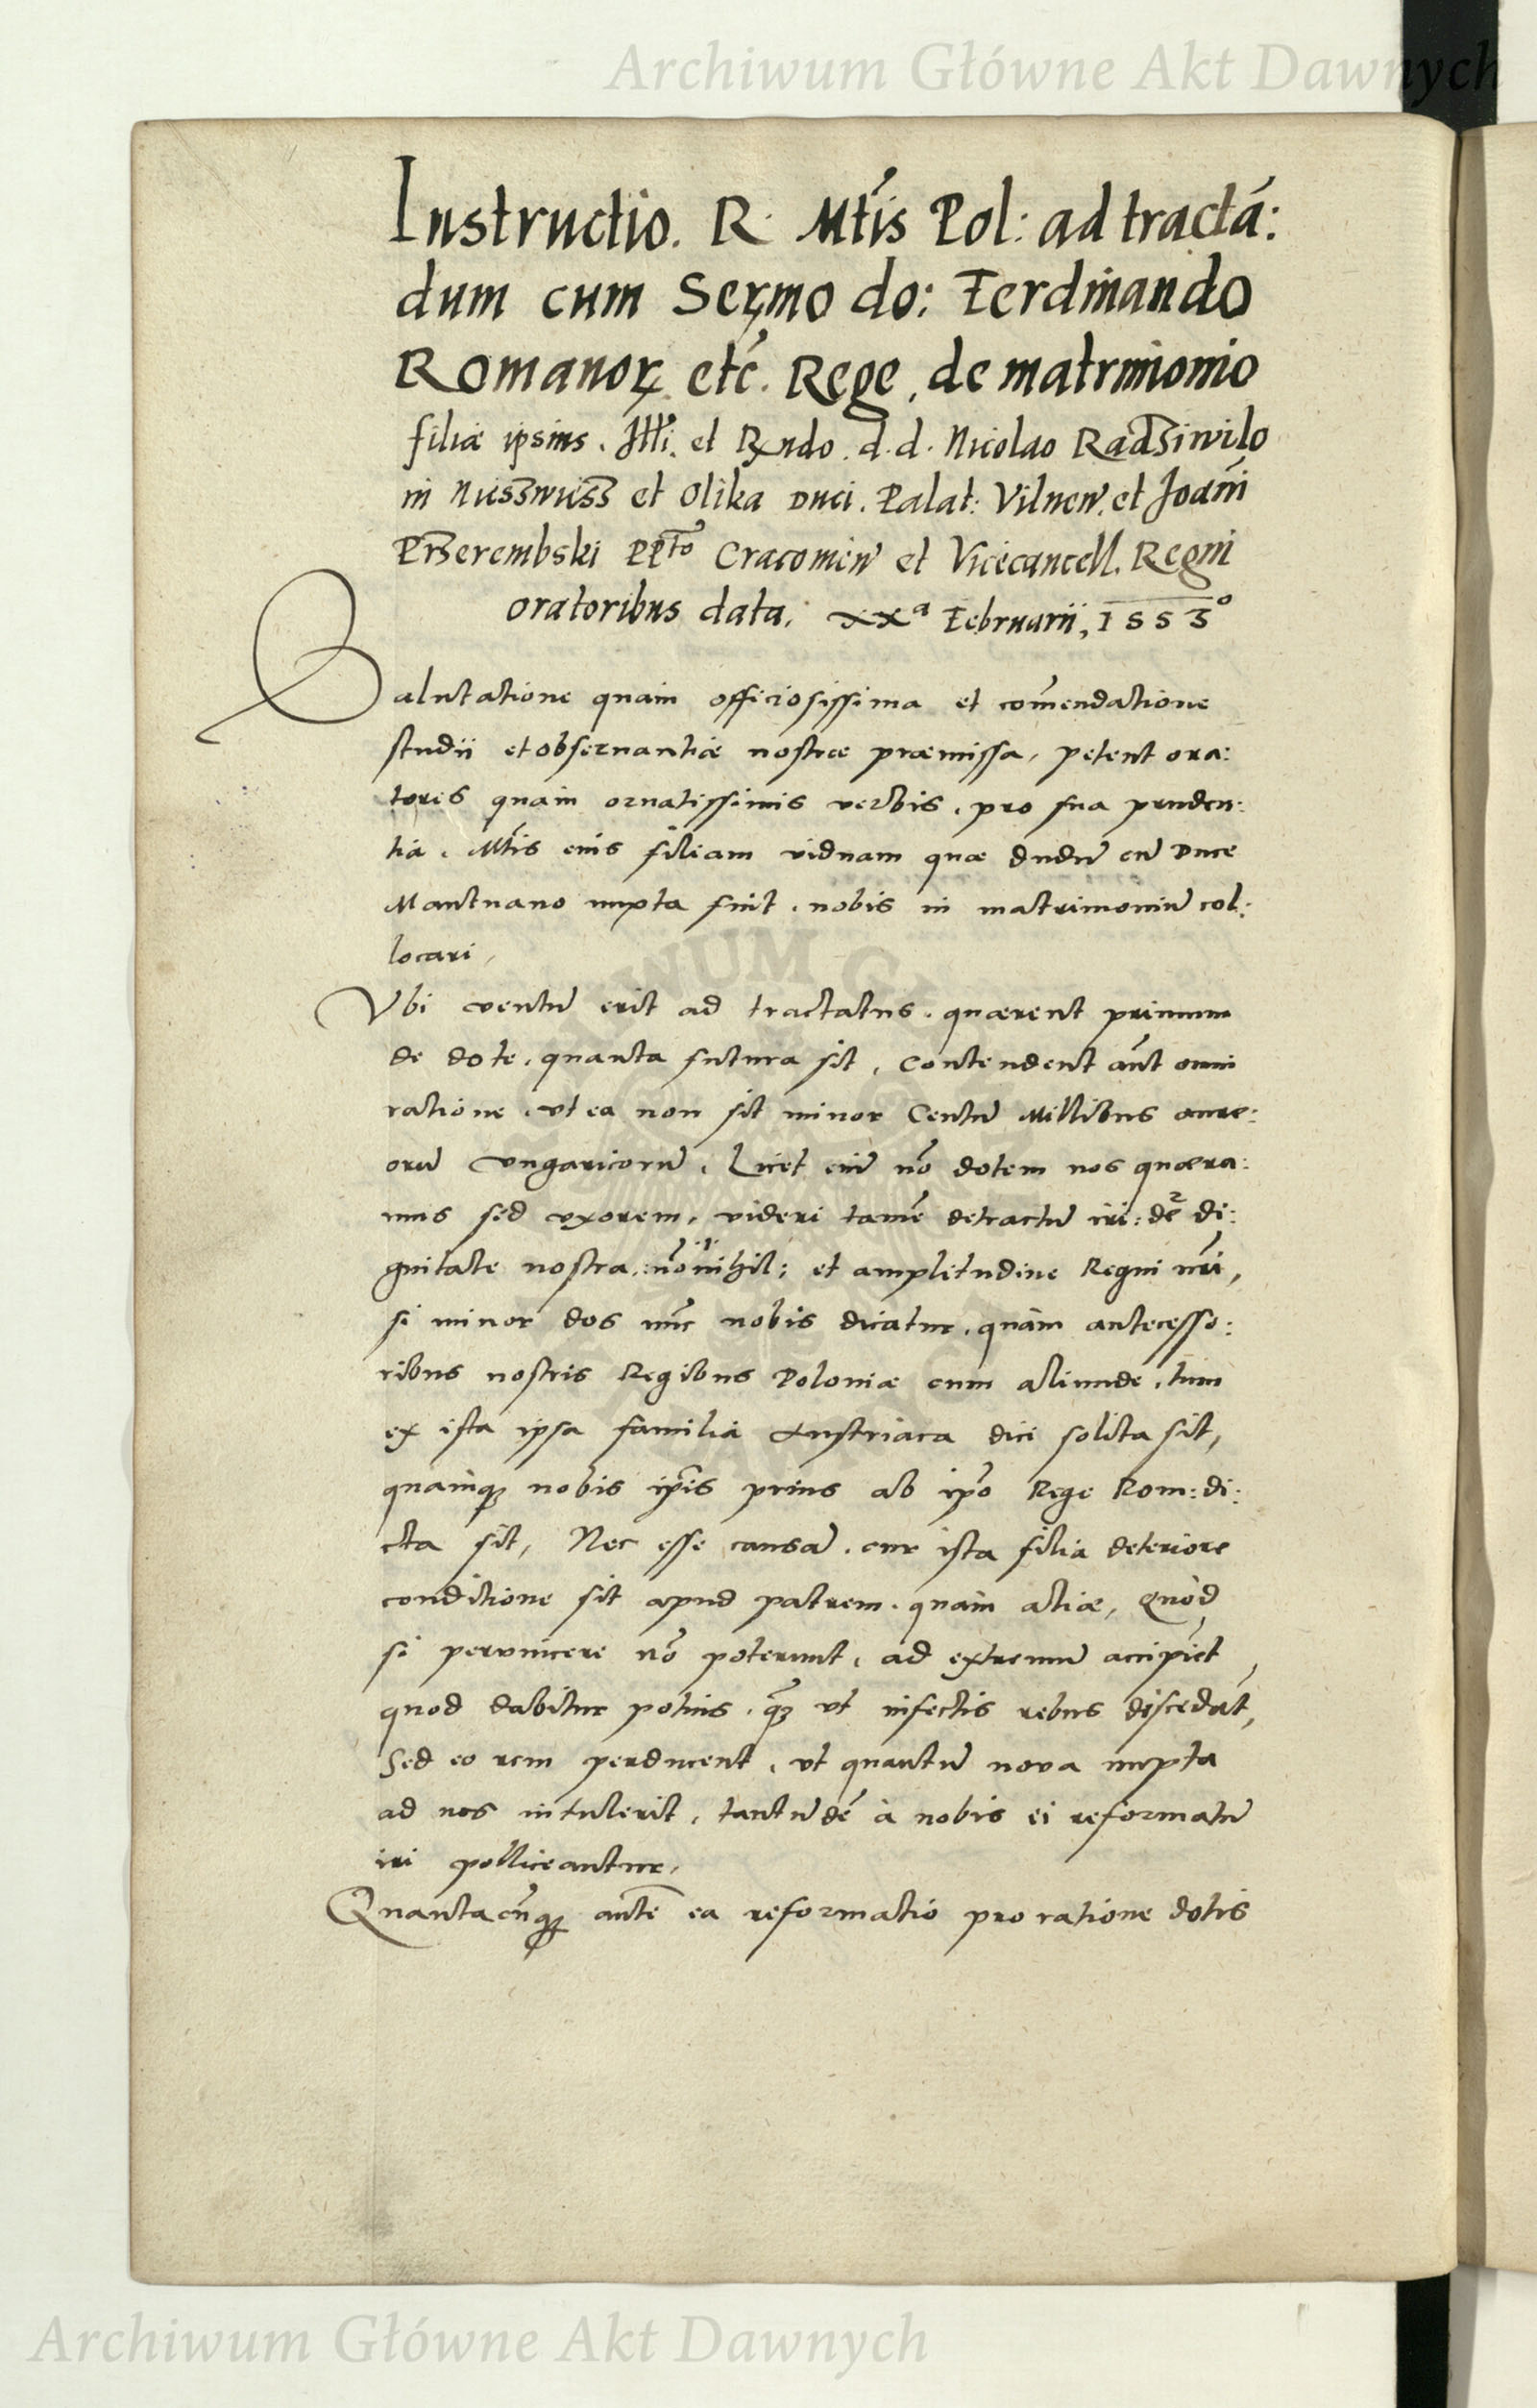 Archiwum Główne Akt Dawnych
Instructio. R. Mtis Pol: ad tractā:
dum cum Serᵐᵒ do: Ferdinando
Romanoꝝ etc. Rege, de matrimonio
filiæ ipsius. Illi. et Rndo. d. d. Nicolao Radziwilo
in Nieswiess et Olika Duci. Palat: Vilnen̄. et Joāni
Przerembski PPto Cracovien̄ et Vicecancell. Regni
oratoribus data. xxᵃ Februarii, 1553°
Salutatione quàm officiosissima et com̄endatione
studii et obseruantiæ nostræ præmissa, petent ora:
tores quàm ornatissimis verbis, pro sua pruden:
tia. Mtis eius filiam viduam quæ dudū cū Duce
Mantuano nupta fuit. nobis in matrimoniū col:
locari,
Vbi ventū erit ad tractatus. quærent primum
de dote, quanta futura sit, Contendent aūt omni
ratione, vt ea non sit minor Centū Millibus aure:
orū vngaricorū. Licet enī nō dotem nos quæra:
mus sed vxorem, videri tamē detractū iri: de di:
gnitate nostra, nōnihil: et amplitudine Regni nr̄i,
si minor dos nūc nobis dicatur, quàm antecesso:
ribus nostris Regibus Poloniæ cum aliunde, tum
ex ista ipsa familia Austriaca dici solita sit,
quàmqꝫ nobis ip̄is prius ab ip̄o Rege Rom: di:
cta sit, Nec esse causā. cur ista filia deteriore
conditione sit apud patrem, quàm aliæ, Quòd
si peruincere nō poterunt, ad extremū accipiēt
quod dabitur potius, q̄ꝫ vt infectis rebus discedāt,
Sed eo rem perducent, vt quantū noua nupta
ad nos intulerit, tantūdē à nobis ei reformatū
iri polliceantur,
Quantacūqꝫ autē ea reformatio pro ratione dotis
Archiwum Główne Akt Dawnych